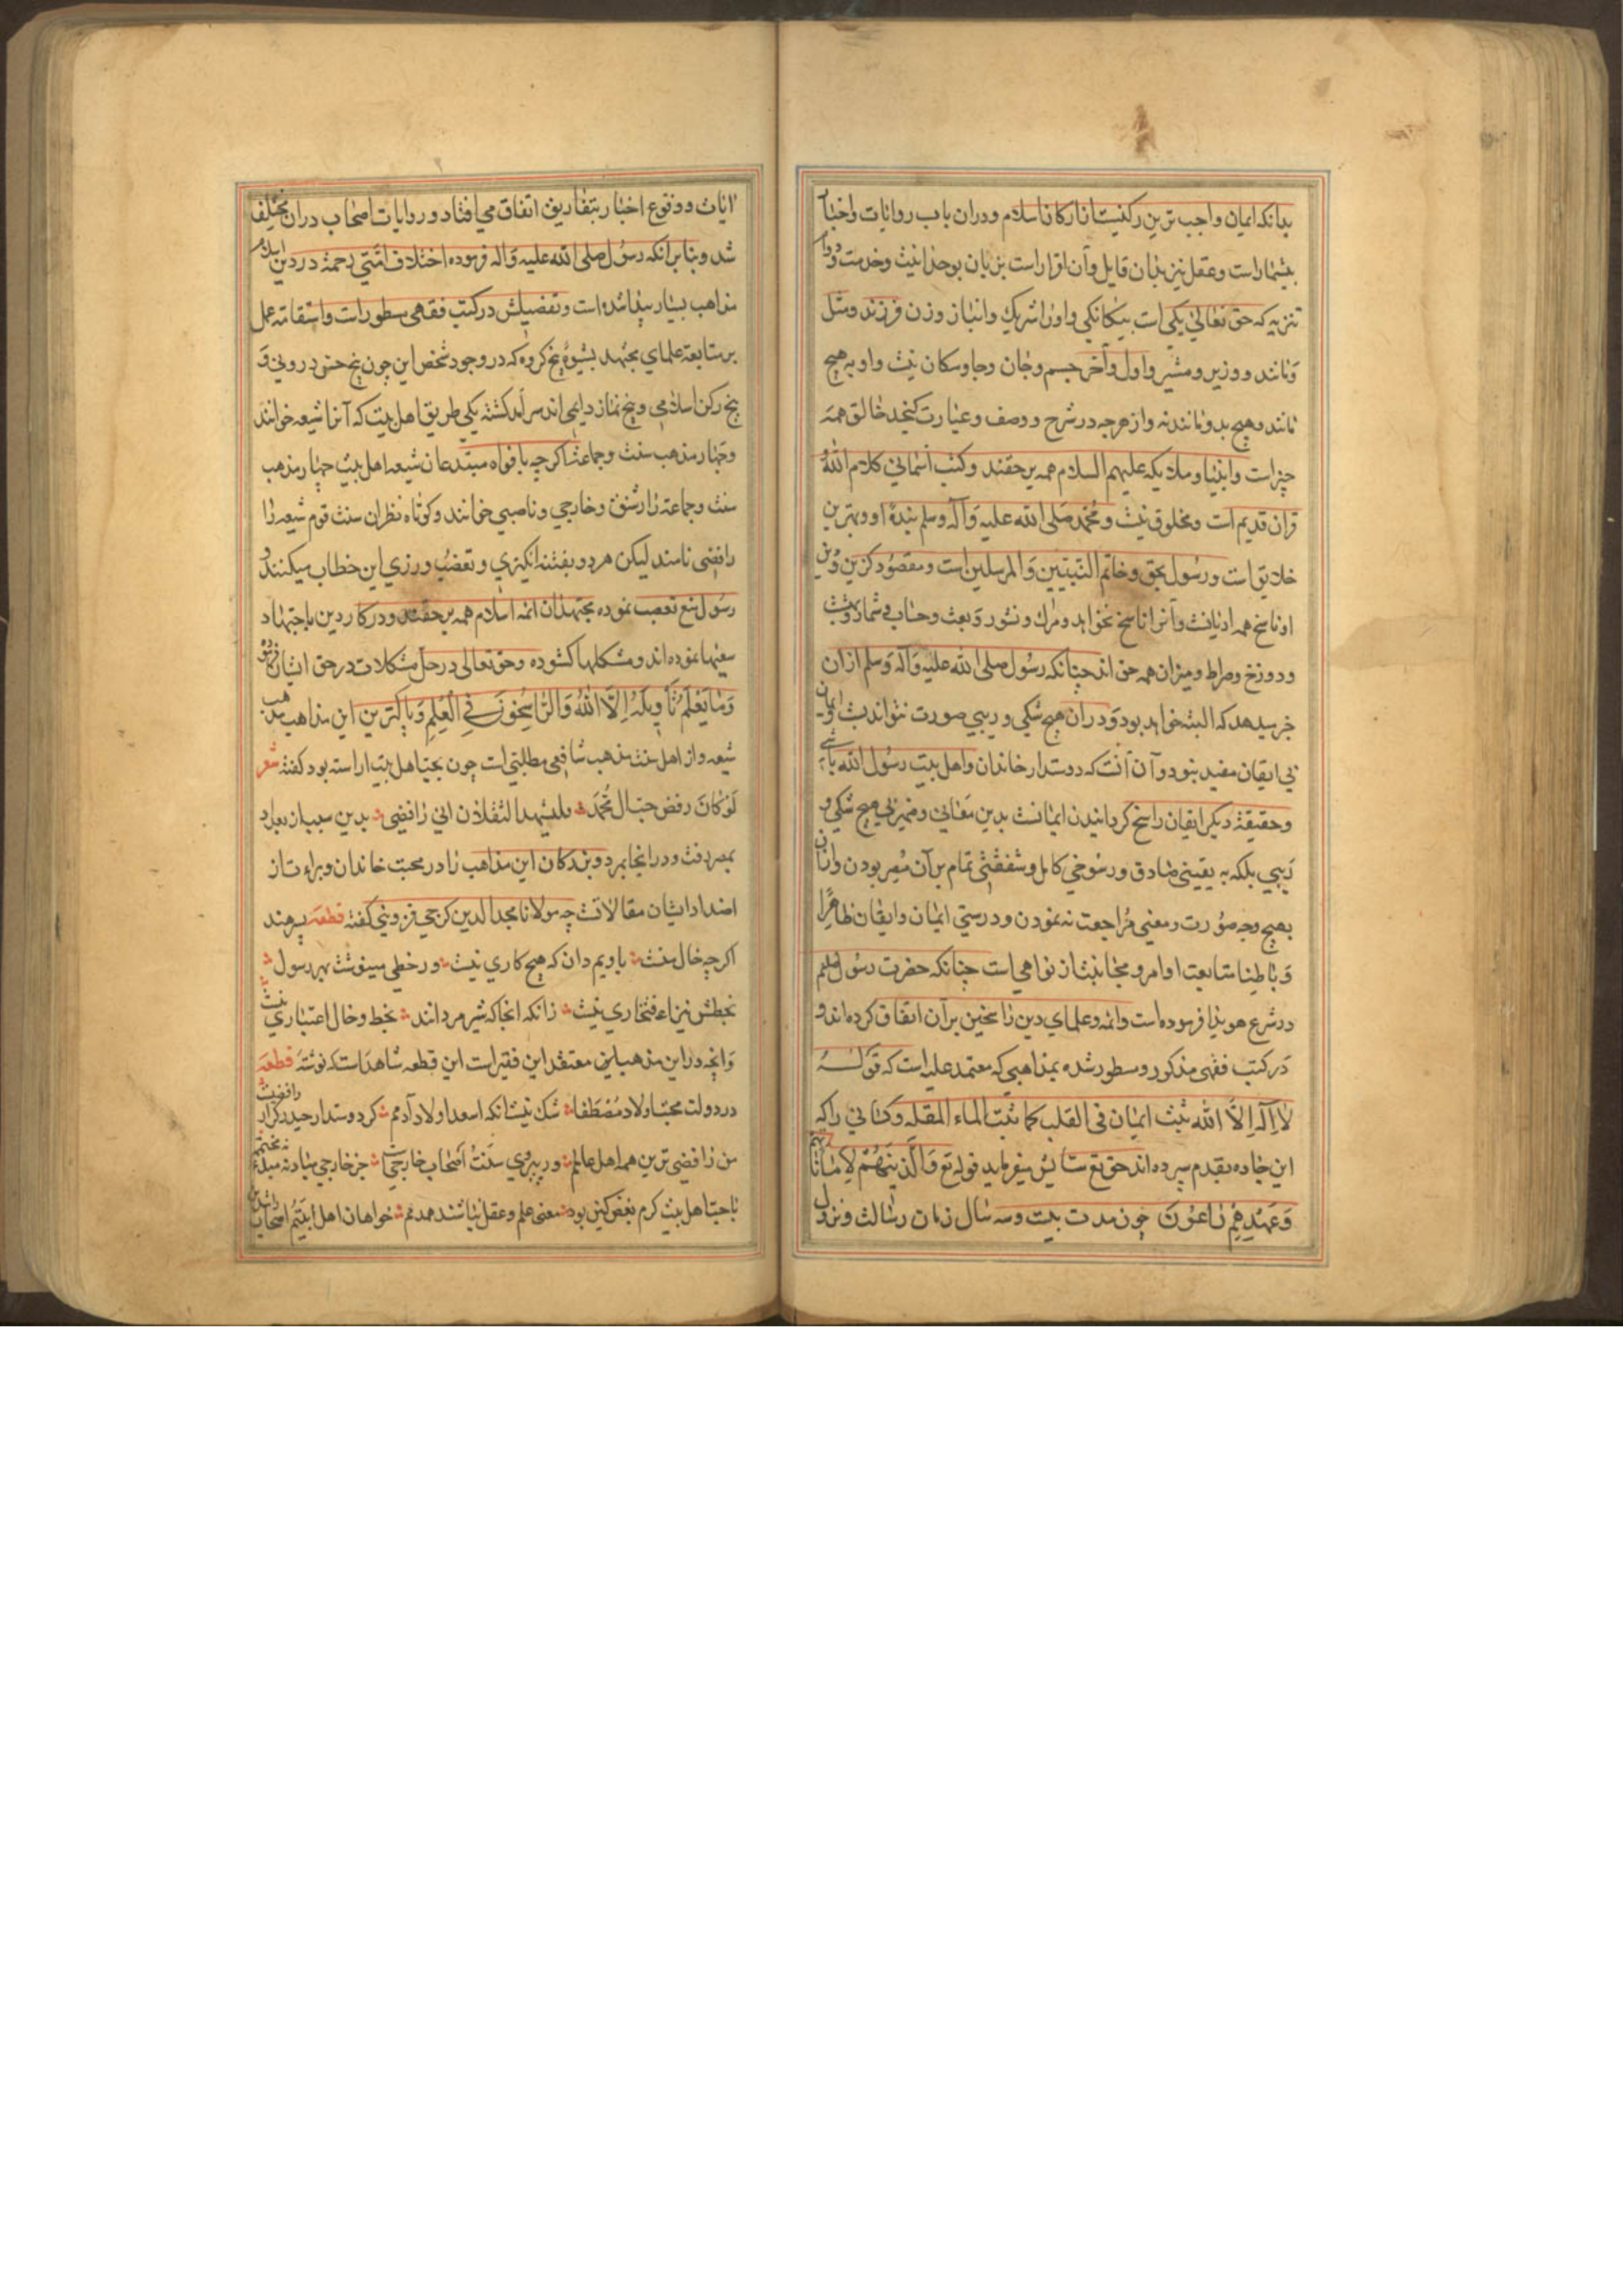 بدانکه ایمان واجب ترین رکنیست از ارکان اسلام و دران باب روایات و اخبار
بیشمار است و عقل نیز بدان قایل و آن اقرار است بزبان بوحدانیت وخدمت و دوام
تنزیه که حق تعالی یکی است بیکانکی و او را شریک و انباز و زن و فرزند و مثل
و مانند و وزیر و مشیر و اول و آخر و جسم و جان و جا و مکان نیست و او به هیچ
نماند و هیچ بدو نماند نه و از هرچه در شرح و وصف و عبارت کنجد خالق همه
چیز است و انبیا و ملایکه علیهم السلام همه بر حقند و کتب آسمانی کلام الله
قران قدیم است و مخلوق نیست و محمد صلی الله علیه و آله وسلم بنده او و بهترین
خلایق است و رسول بحق و خاتم النبیین و المرسلین است و مقصود کزین و دین
او ناسخ همه ادیانست و آنرا ناسخ نخواهد و مرک و نشور و بعث و حساب و شمار و بهشت
و دوزخ و صراط و میزان همه حق اند چنانکه رسول صلی الله علیه و آله وسلم ازان
خبر میدهد که البته خواهد بود و دران هیچ شکی و ریبی صورت نتواند بست و ایمان
بی ایقان مفید نبود و آن آنست که دوستدار خاندان و اهل بیت رسول الله باشی
و حقیقة دیکر ایقان راسخ کردانیدن ایمانست بدین معانی و ضمیر بی هیچ شکی و
ریبی بلکه به یقینی صادق و رسوخی کامل و شفقتی تمام بر آن مصر بودن و ازان
بهیچ وجه صورت و معنی مراجعت نه نمودن و درستی ایمان و ایقان ظاهرا
و باطنا متابعت اوامر و مجانبت از نواهی است چنانکه حضرت رسول صلعم
در شرع هویدا فرموده است و ائمه و علمای دین راسخین بر آن اتفاق کرده اند و
در کتب فقهی مذکور و مسطور شده بمذاهبی که معتمد علیه است که قوله
لا اله الا الله یثبت ایمان فی القلب کما یثبت الماء المقله و کسانی را که
این جاده بقدم سپرده اند حق تع ستایش میفرماید قوله تع و الذینهم لاماناتهم
و عهدهم راعون چون مدت بیست و سه سال زمان رسالت و نزول
ایات و وقوع اخبار بتفاریق اتفاق می افتاد و روایات اصحاب دران مختلف
شد و بنا بر انکه رسول صلی الله علیه و اله فرموده اختلاف امتی رحمة در دین اسلام
مذاهب بسیار پیدا شده است و تفصیلش در کتب فقهی مسطور است و استقامة عمل
بر متابعة علمای مجتهد بشیوهٔ پنج کروه که در وجود شخص این چون پنج حس درونی و
پنج رکن اسلامی و پنج نماز دایمی اند سر آمد کشته یکی طریق اهل بیت که آنرا شیعه خوانند
و چهار مذهب سنت و جماعت اکرچه بافواه مبتدعان شیعه اهل بیت چهار مذهب
سنت و جماعة را سنی و خارجی و ناصبی خوانند و کوتاه نظران سنت قوم شیعه را
رافضی نامند لیکن هر دو بفتنه انکیزی و تعصب ورزی این خطاب میکنند و
رسول منع تعصب نموده مجتهدان ائمه اسلام همه بر حقند و در کار دین باجتهاد
سعیها نموده اند و مشکلها کشوده و حق تعالی در حل مشکلات در حق ایشان فرموده
وما یعلم تاویله الا الله و الراسخون فی العلم و پاکترین این مذاهب مذهب
شیعه و از اهل سنت مذهب شافعی مطلبی است چون بحب اهل بیت اراسته بود کفته شعر
لو کان رفض حب ال محمد فلیشهد الثقلان انی رافضی بدین سبب از بغداد
بمصر رفت و در انجا بمرد و بزرکان این مذاهب را در محبت خاندان و براءت از
اضداد ایشان مقالاتست چه مولانا مجد الدین کرجی قزوینی کفته قطعه پسر هند
اکرچه خال منست باویم دان که هیچ کاری نیست ور خطی مینوشت بهر رسول
بخطش نیز افتخاری نیست زانکه انجا که شیر مردانند بخط و خال اعتباری نیست
و انچه در این مذهب این معتقد این فقیر است این قطعه شاهد است که نوشته قطعه
در دولت محبت اولاد مصطفا شک نیست انکه اسعد اولاد آدمم کر دوستدار حیدر کرار رافضیست
من رافضی ترین همه اهل عالمم ور پیروی سنت اصحاب خارجیست جز خارجی مباد نه مبدا نه مختتم
با حب اهل بیت کرم بغض کین بود معنی علم و عقل نباشند همدمم خواهان اهل بیتم اصحاب راشدین